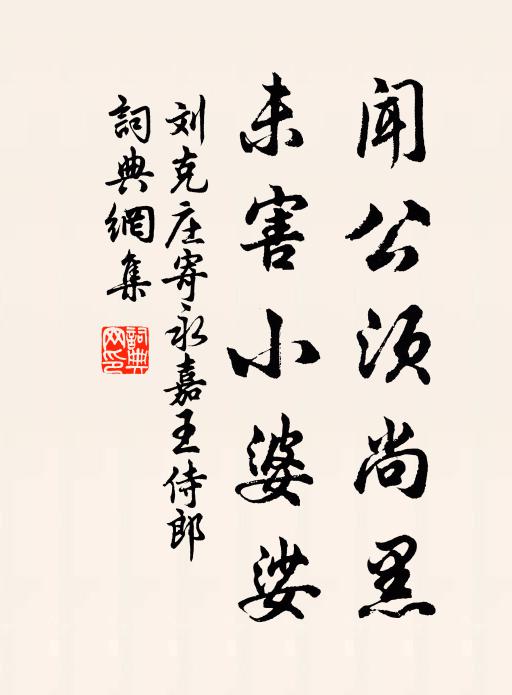 闻公须尚黑
未害小婆娑
刘克庄寄永嘉王侍郎
詞典網集
詞典网印